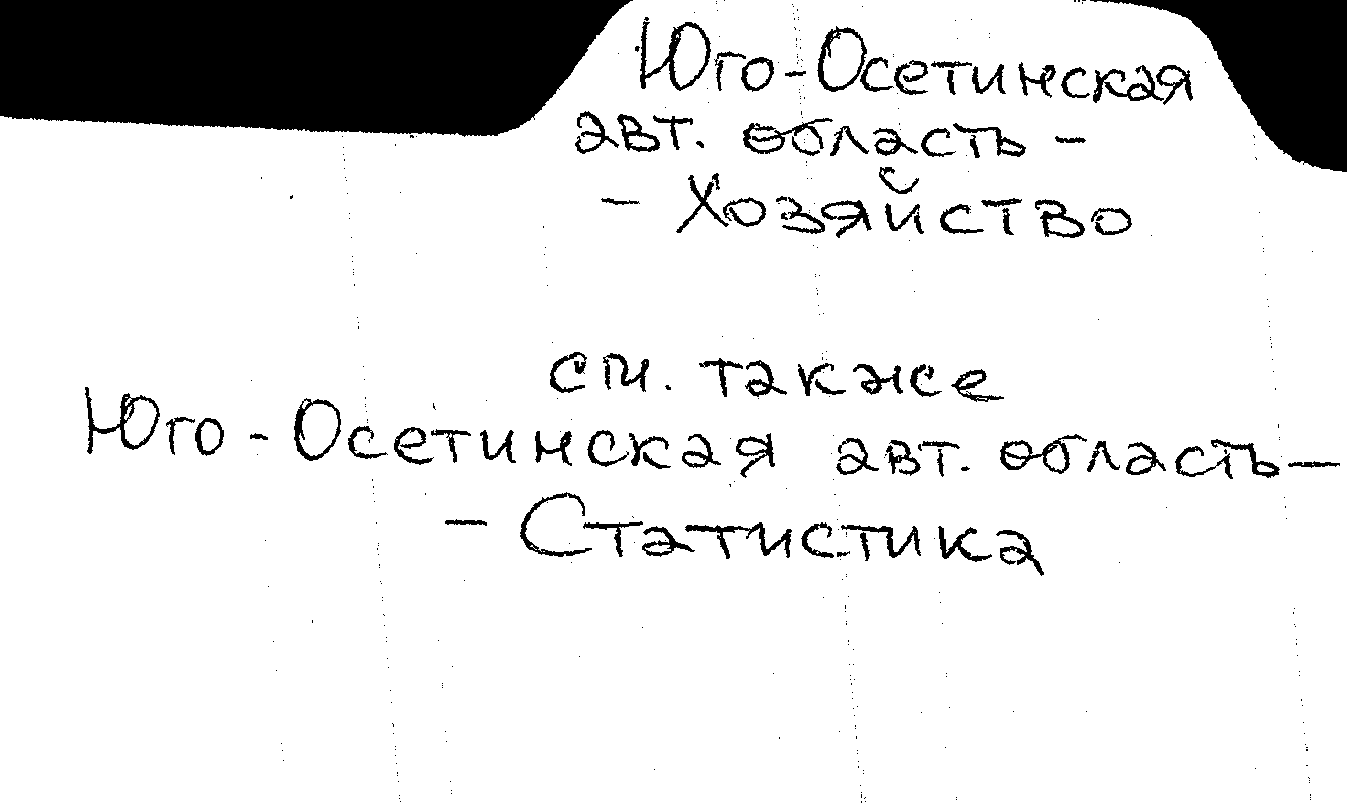 Юго-Осетинская
авт. область -
- Хозяйство
см. также
Юго-Осетинская авт. область -
- Статистика